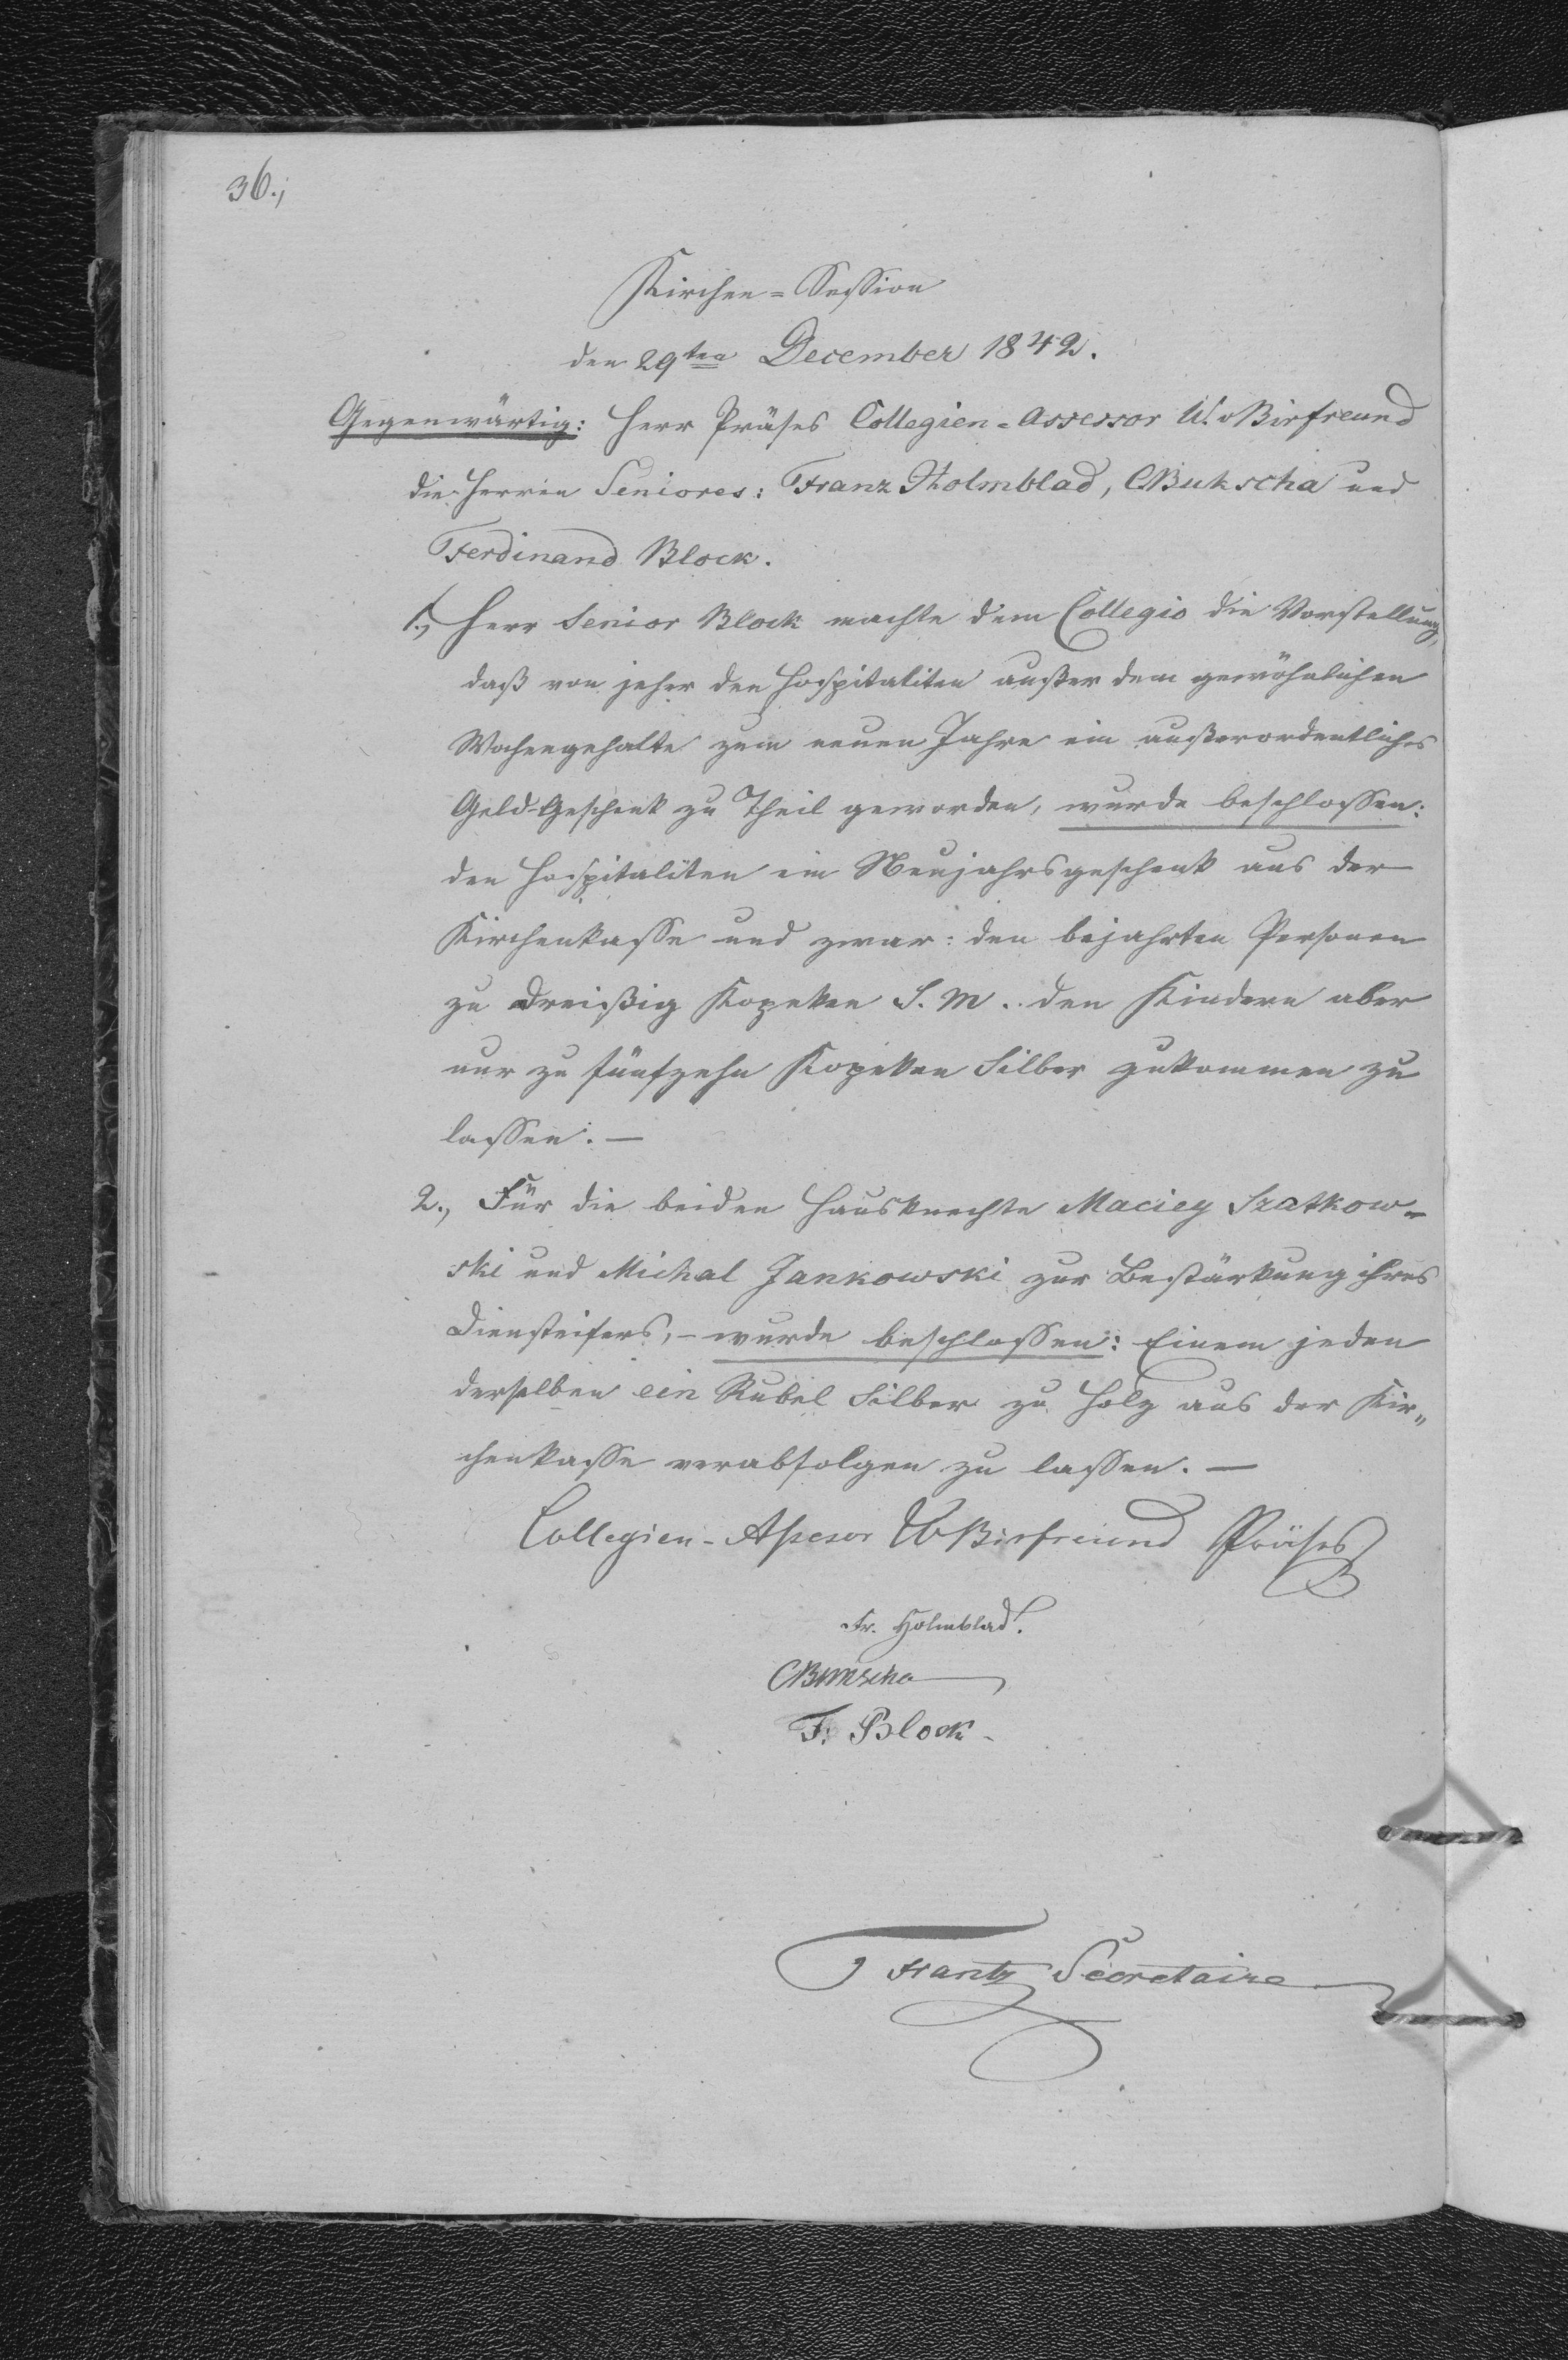 36.,
Kirchen=Session
den 29ten December 1842.
Gegenwärtig: Herr Präses Collegien=Assessor W. Birfreund
die Herren Seniores: Franz Holmblad, CBukscha und
Ferdinand Block.
1., Herr Senior Block machte dem Collegio die Vorstellung,
daß von jeher den Hospitaliten außer dem gewöhnlichen
Wochengehalte zum neuen Jahre ein außerordentliches
Geld-Geschenk zu Theil geworden, wurde beschlossen:
den Hospitaliten ein Neujahrsgeschenk aus der
Kirchenkasse und zwar: den bejahrten Personen
zu dreißig Kopeken S. M. den Kindern aber
nur zu fünfzehn Kopeken Silber zukommen zu
lassen. —
2., Für die beiden Hausknechte Maciey Szatkow=
ski und Michal Jankowski zur Bestärkung ihres
Diensteifers, – wurde beschlossen: Einem jeden
derselben ein Rubel Silber zu Holz aus der Kir„
chenkasse verabfolgen zu lassen. —
Collegien-Assesor WBirfreund Präses
Fr. Holmblad.
CBukscha
F. Block
Frantz Secretaire